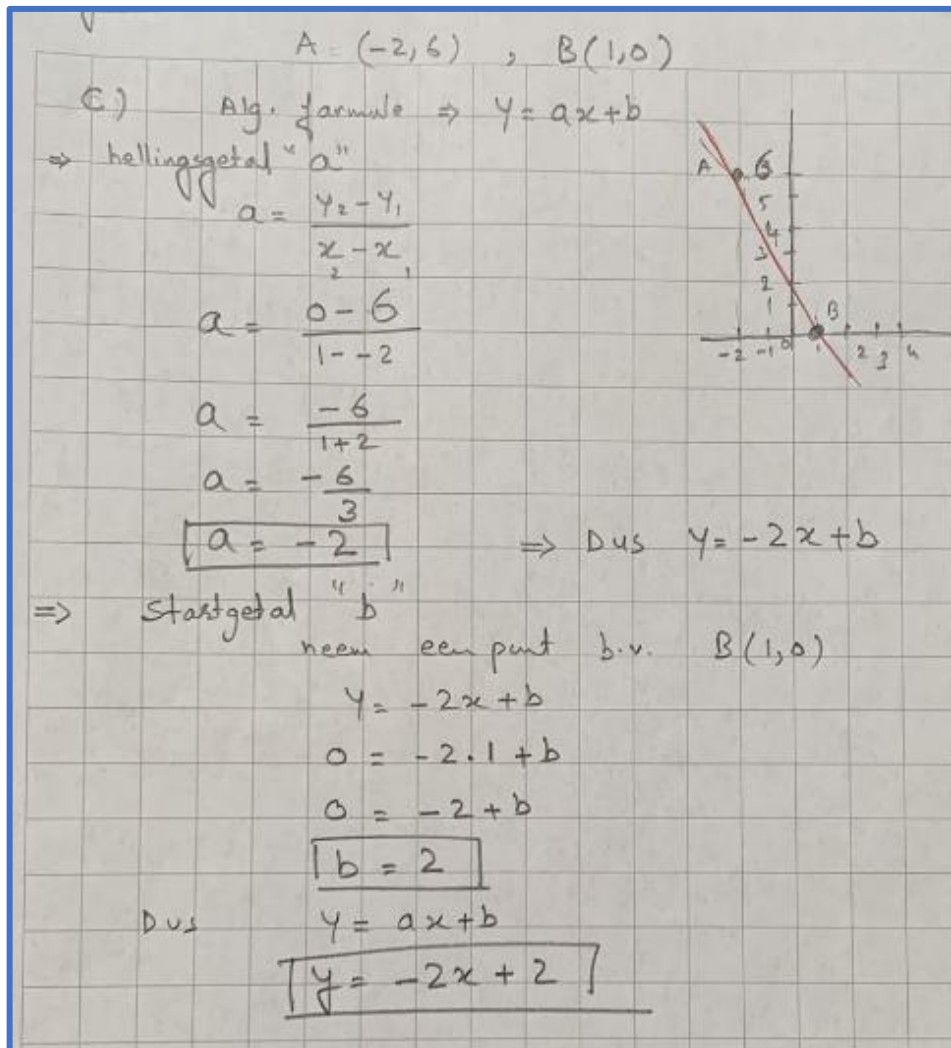 A = (-2,6) , B(1,0)
C.) Alg. formule ⇒ y = ax+b
⇒ hellingsgetal "a"
a = y₂ - y₁ / x₂ - x₁
a = 0 - 6 / 1 - -2
a = -6 / 1+2
a = -6/3
a = -2 ⇒ Dus y = -2x + b
⇒ Startgetal "b"
neem een punt b.v. B(1,0)
y = -2x + b
0 = -2.1 + b
0 = -2 + b
b = 2
Dus y = ax+b
y = -2x + 2
A 6
5
4
3
2
1 B
-2 -1 0 1 2 3 4